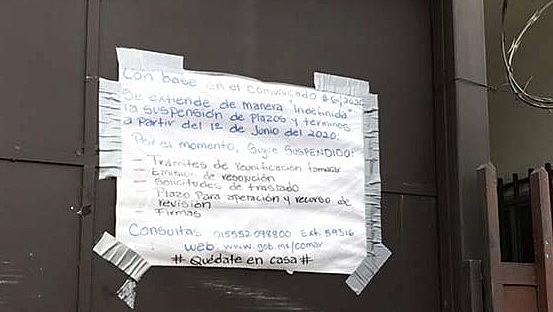 Con base en el comunicado #
Se extiende de manera "indefinida"
la suspensión de plazos y términos
a partir del 1º de Junio del 2020.
Por el momento, Sigue SUSPENDIDO:
- Trámites de reunificación familiar
- Emisión de resolución
- Solicitudes de traslado
- Plazo para operación y recurso de
revisión
- Firmas
Consultas 015552098800 Ext. 59516
web: www.gob.mx/comar
# Quédate en casa #